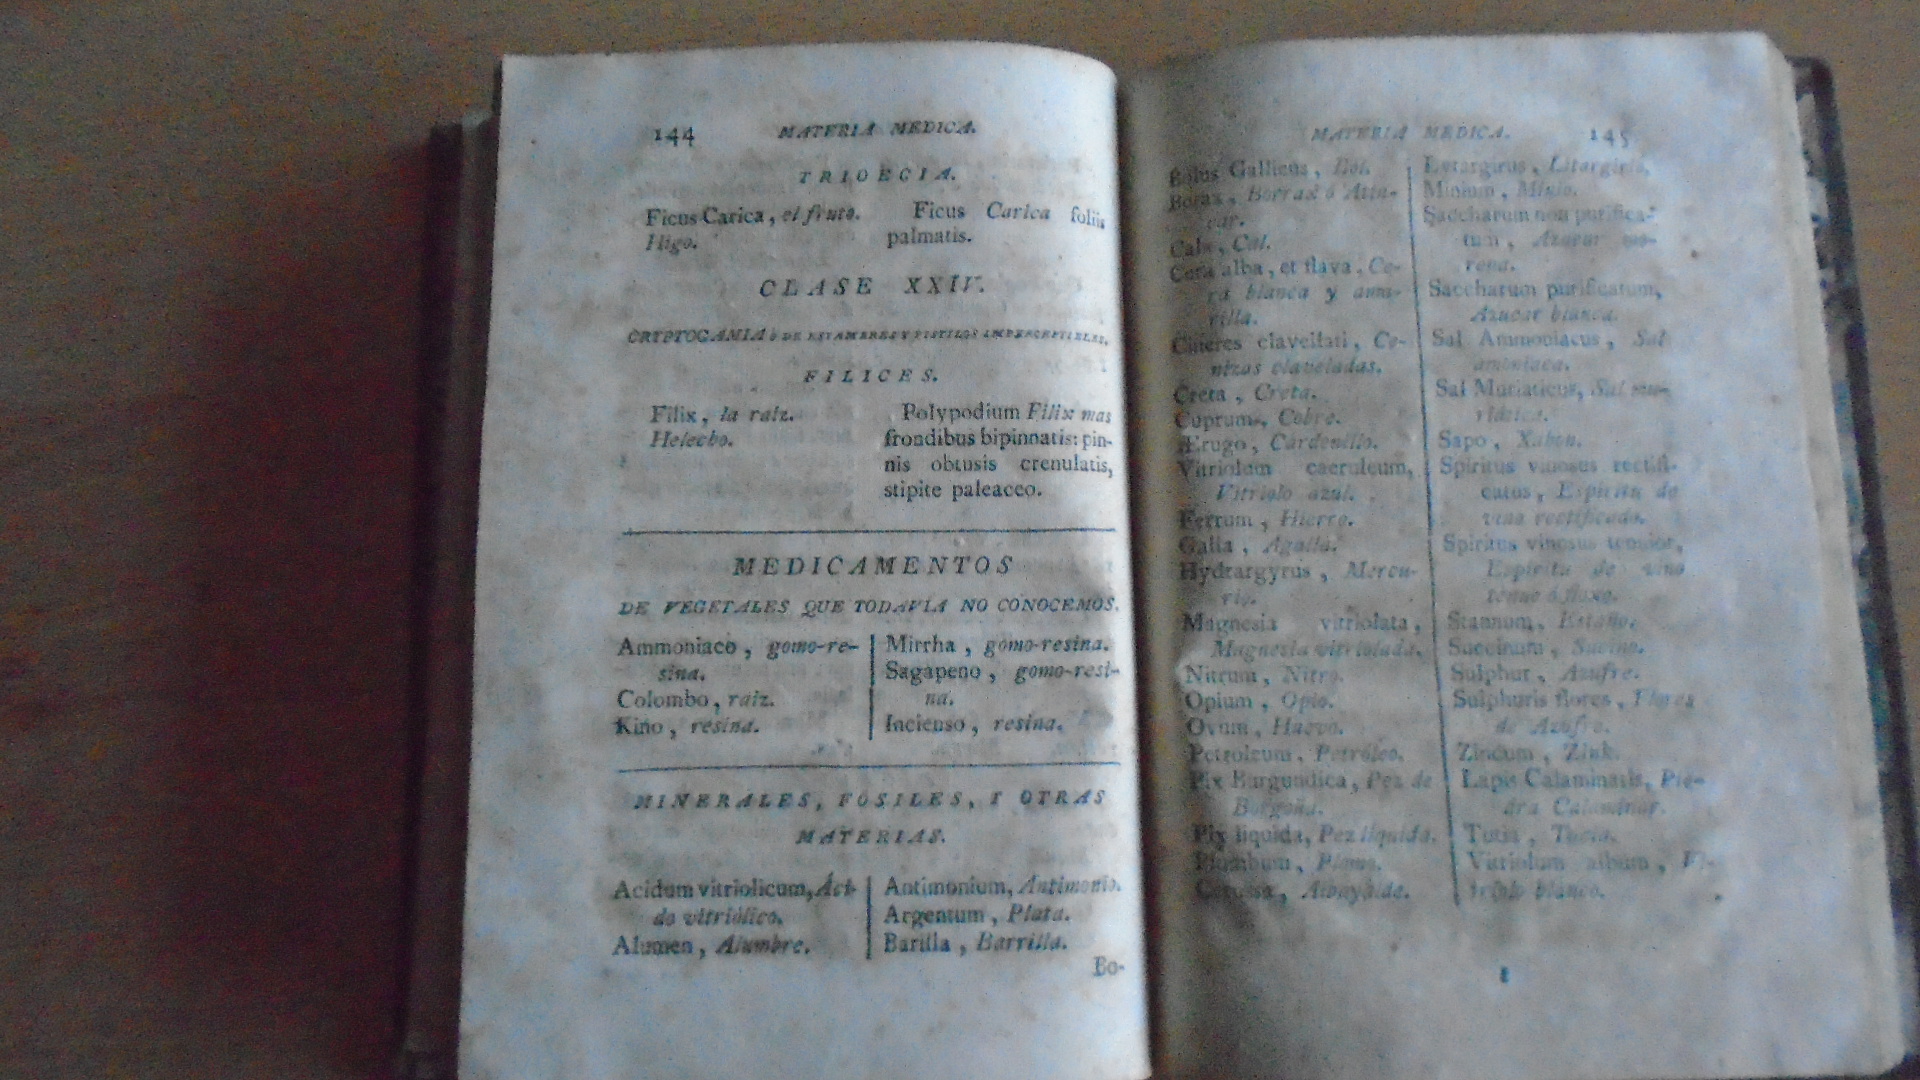 144 MATERIA MEDICA.
TRIOECIA.
Ficus Carica, el fruto.
Higo.
Ficus Carica foliis
palmatis.
CLASE XXIV.
CRYPTOGAMIA ò DE ESTAMBRES Y PISTILOS IMPERCEPTIBLES.
FILICES.
Filix, la raiz.
Helecho.
Polypodium Filix mas
frondibus bipinnatis: pin-
nis obtusis crenulatis,
stipite paleaceo.
MEDICAMENTOS
DE VEGETALES QUE TODAVIA NO CONOCEMOS.
Ammoniaco, gomo-re-
sina.
Colombo, raiz.
Kino, resina.
Mirrha, gomo-resina.
Sagapeno, gomo-resi-
na.
Incienso, resina.
MINERALES, FÓSILES, Y OTRAS
MATERIAS.
Acidum vitriolicum, Áci-
do vitriólico.
Alumen, Alumbre.
Antimonium, Antimonio.
Argentum, Plata.
Barilla, Barrilla.
Bo-
MATERIA MEDICA. 145
Bolus Gallicus, Bol.
Borax, Borrax ó Atin-
car.
Calx, Cal.
Cera alba, et flava, Ce-
ra blanca y ama-
rilla.
Cineres clavellati, Ce-
nizas claveladas.
Creta, Creta.
Cuprum, Cobre.
Ærugo, Cardenillo.
Vitriolum caeruleum,
Vitriolo azul.
Ferrum, Hierro.
Galla, Agalla.
Hydrargyrus, Mercu-
rio.
Magnesia vitriolata,
Magnesia vitriolada.
Nitrum, Nitro.
Opium, Opio.
Ovum, Huevo.
Petroleum, Petróleo.
Pix Burgundica, Pez de
Borgoña.
Pix liquida, Pez liquida.
Plumbum, Plomo.
Cerussa, Albayalde.
Lytargirus, Litargirio.
Minium, Minio.
Saccharum non purifica-
tum, Azucar mo-
rena.
Saccharum purificatum,
Azucar blanca.
Sal Ammoniacus, Sal
amoniaca.
Sal Muriaticus, Sal mu-
riática.
Sapo, Xabon.
Spiritus vinosus rectifi-
catus, Espiritu de
vino rectificado.
Spiritus vinosus tenuior,
Espiritu de vino
tenue ó floxo.
Stannum, Estaño.
Succinum, Sucino.
Sulphur, Azufre.
Sulphuris flores, Flores
de Azufre.
Zincum, Zink.
Lapis Calaminaris, Pie-
dra Calaminar.
Tutia, Tucia.
Vitriolum album, Vi-
triolo blanco.